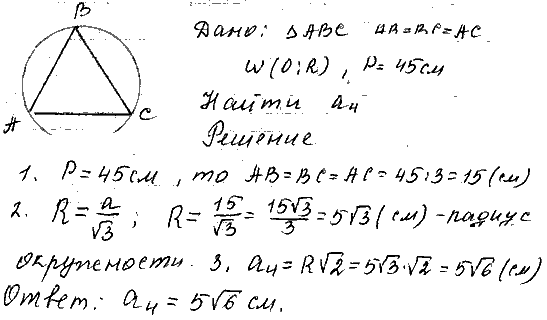 B
A
C
Дано: △ABC AB=BC=AC
W(O;R), P=45см
Найти a₄
Решение
1. P=45см, то AB=BC=AC=45:3=15(см)
2. R=a/√3; R=15/√3=15√3/3=5√3(см)-радиус
окружености. 3. a₄=R√2=5√3·√2=5√6(см)
Ответ: a₄=5√6 см.